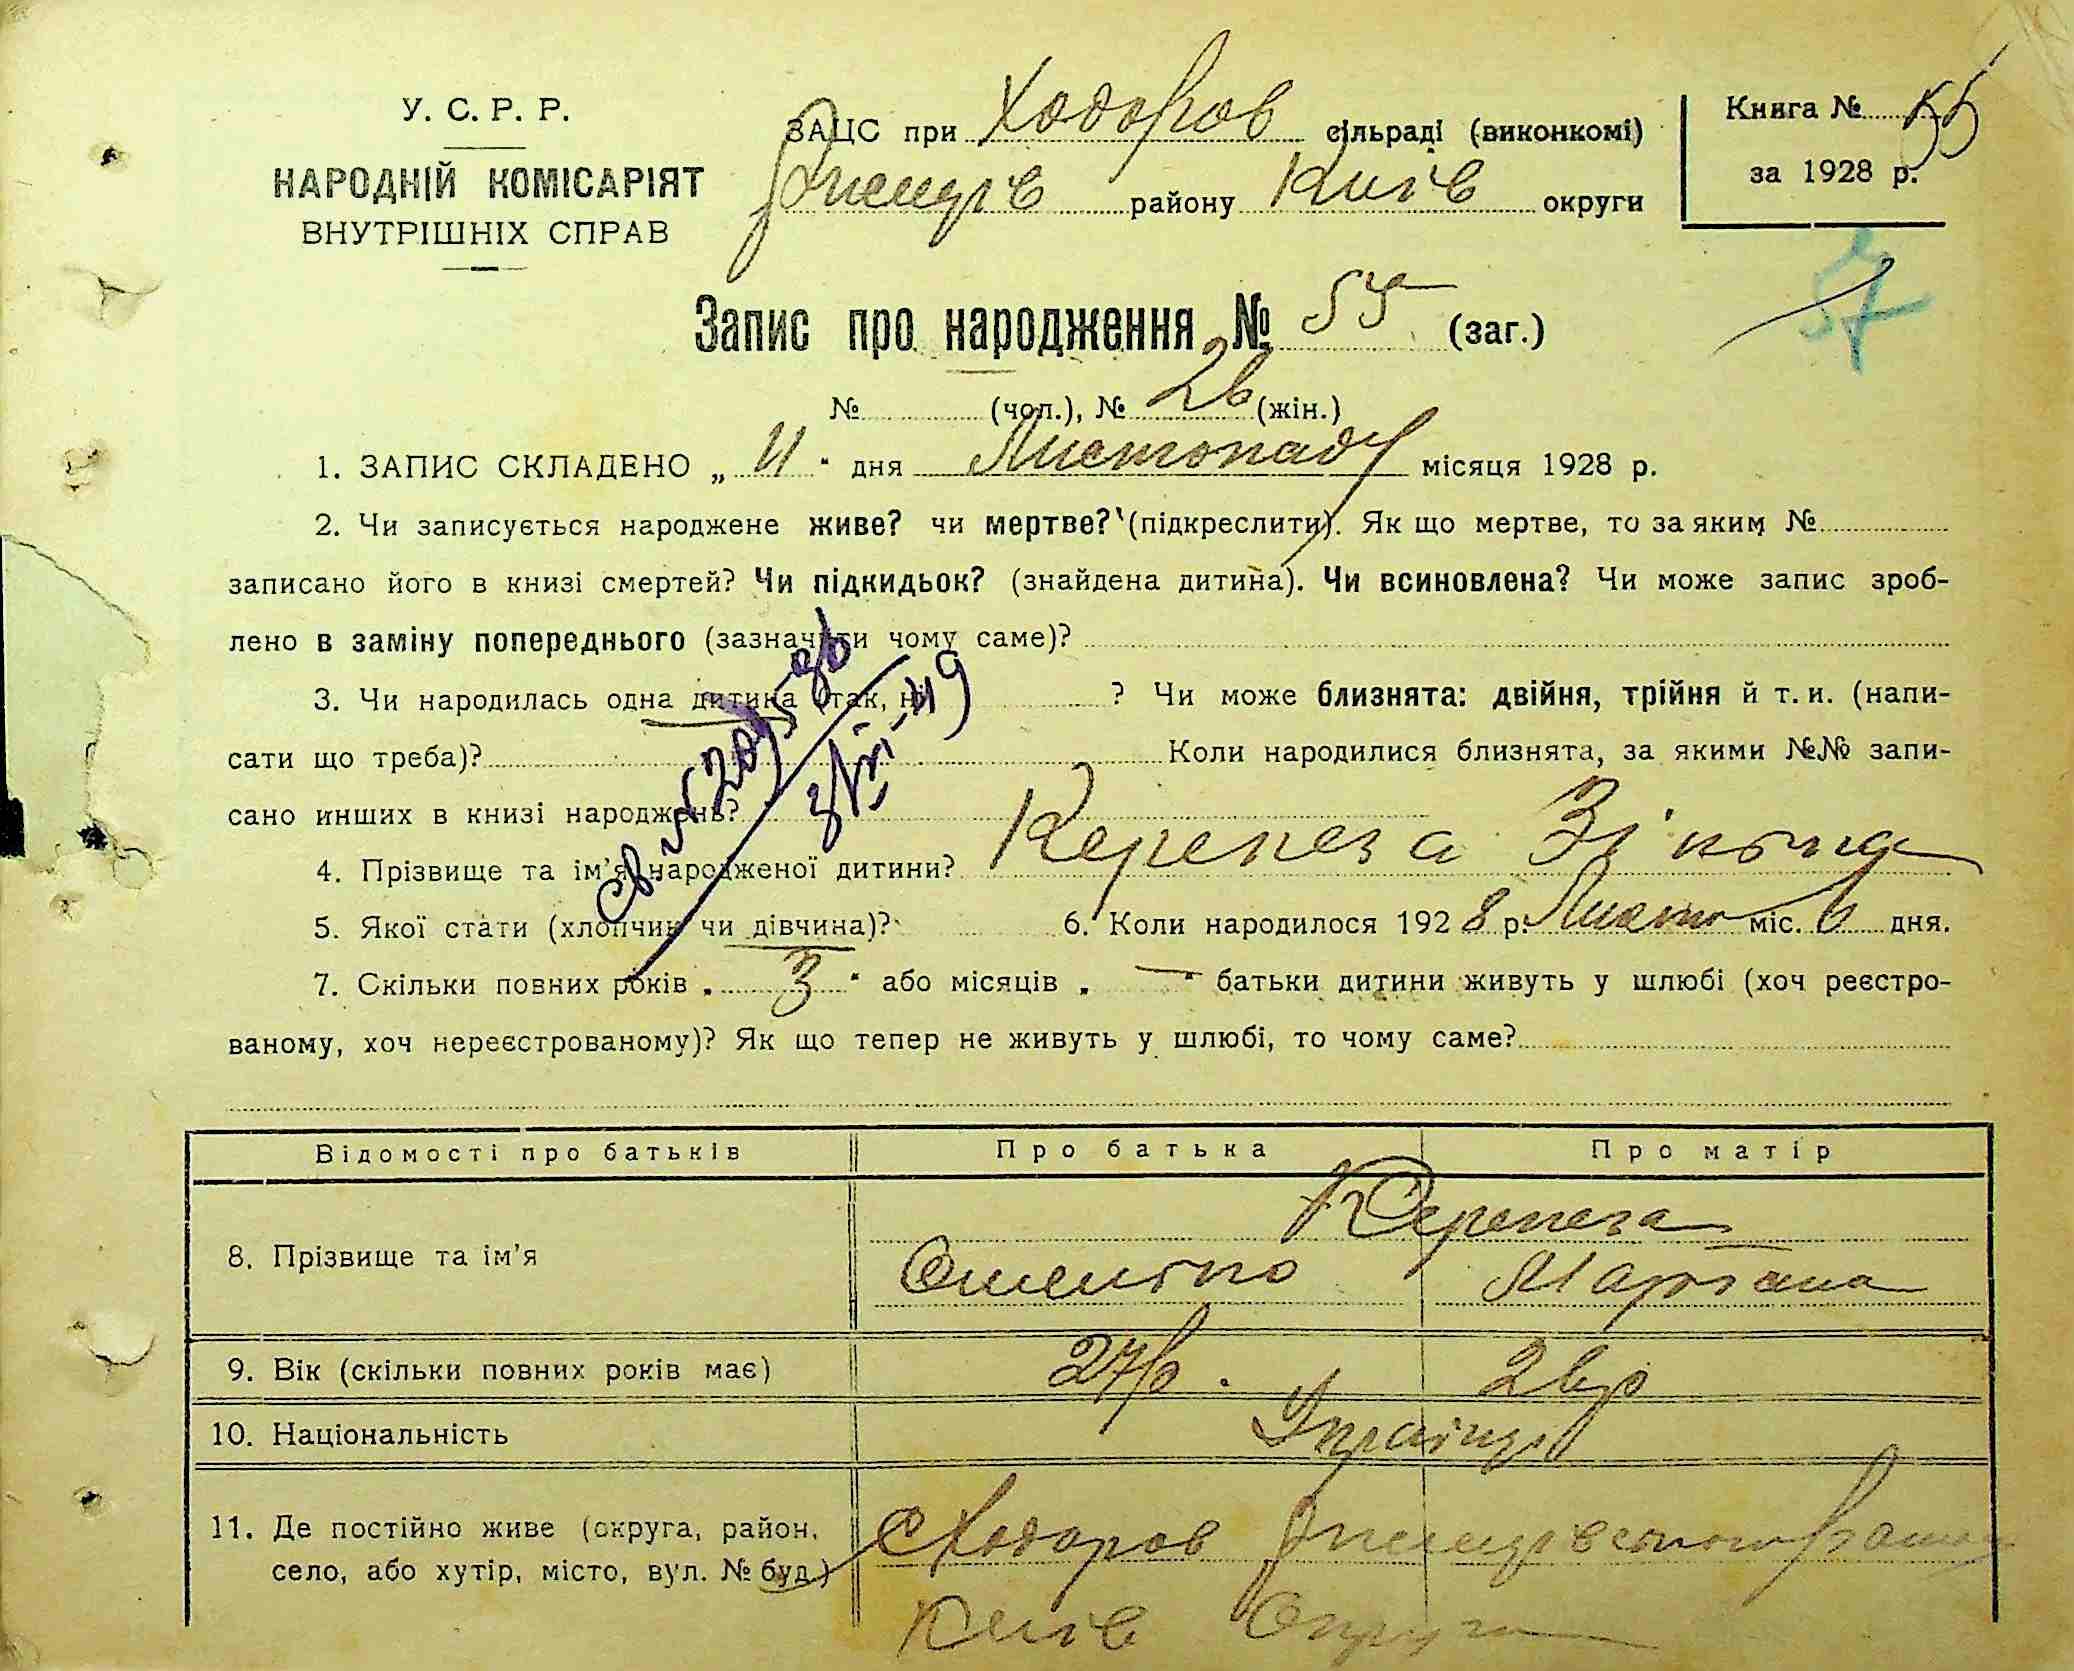 У. С. Р. Р.
НАРОДНІЙ КОМІСАРІЯТ
ВНУТРІШНІХ СПРАВ
ЗАЦС при Ходоров сільраді (виконкомі)
Ржищів району Київ округи
Книга № 55
за 1928 р.
57
Запис про народження № 55 (заг.)
№ (чол.), № 26 (жін.)
1. ЗАПИС СКЛАДЕНО „ 11 " дня Листопаду місяця 1928 р.
2. Чи записується народжене живе? чи мертве? (підкреслити). Як що мертве, то за яким №
записано його в книзі смертей? Чи підкидьок? (знайдена дитина). Чи всиновлена? Чи може запис зроб-
лено в заміну попереднього (зазначити чому саме)?
3. Чи народилась одна дитина (так, ні ? Чи може близнята: двійня, трійня й т. и. (напи-
сати що треба)? Коли народилися близнята, за якими №№ запи-
сано инших в книзі народжень?
4. Прізвище та ім'я народженої дитини? Керекеза Зінька
5. Якої стати (хлопчик чи дівчина)? 6. Коли народилося 1928 р. Листо міс. 6 дня.
7. Скільки повних років „ 3 " або місяців „ — " батьки дитини живуть у шлюбі (хоч реєстро-
ваному, хоч нереєстрованому)? Як що тепер не живуть у шлюбі, то чому саме?
Відомості про батьків Про батька Про матір
Керекеза
8. Прізвище та ім'я Омелько Мартана
9. Вік (скільки повних років має) 27 р. 26 р
10. Національність Українці
11. Де постійно живе (округа, район, с Ходоров Ржищівського Району
село, або хутір, місто, вул. № буд.)
Київ Округи